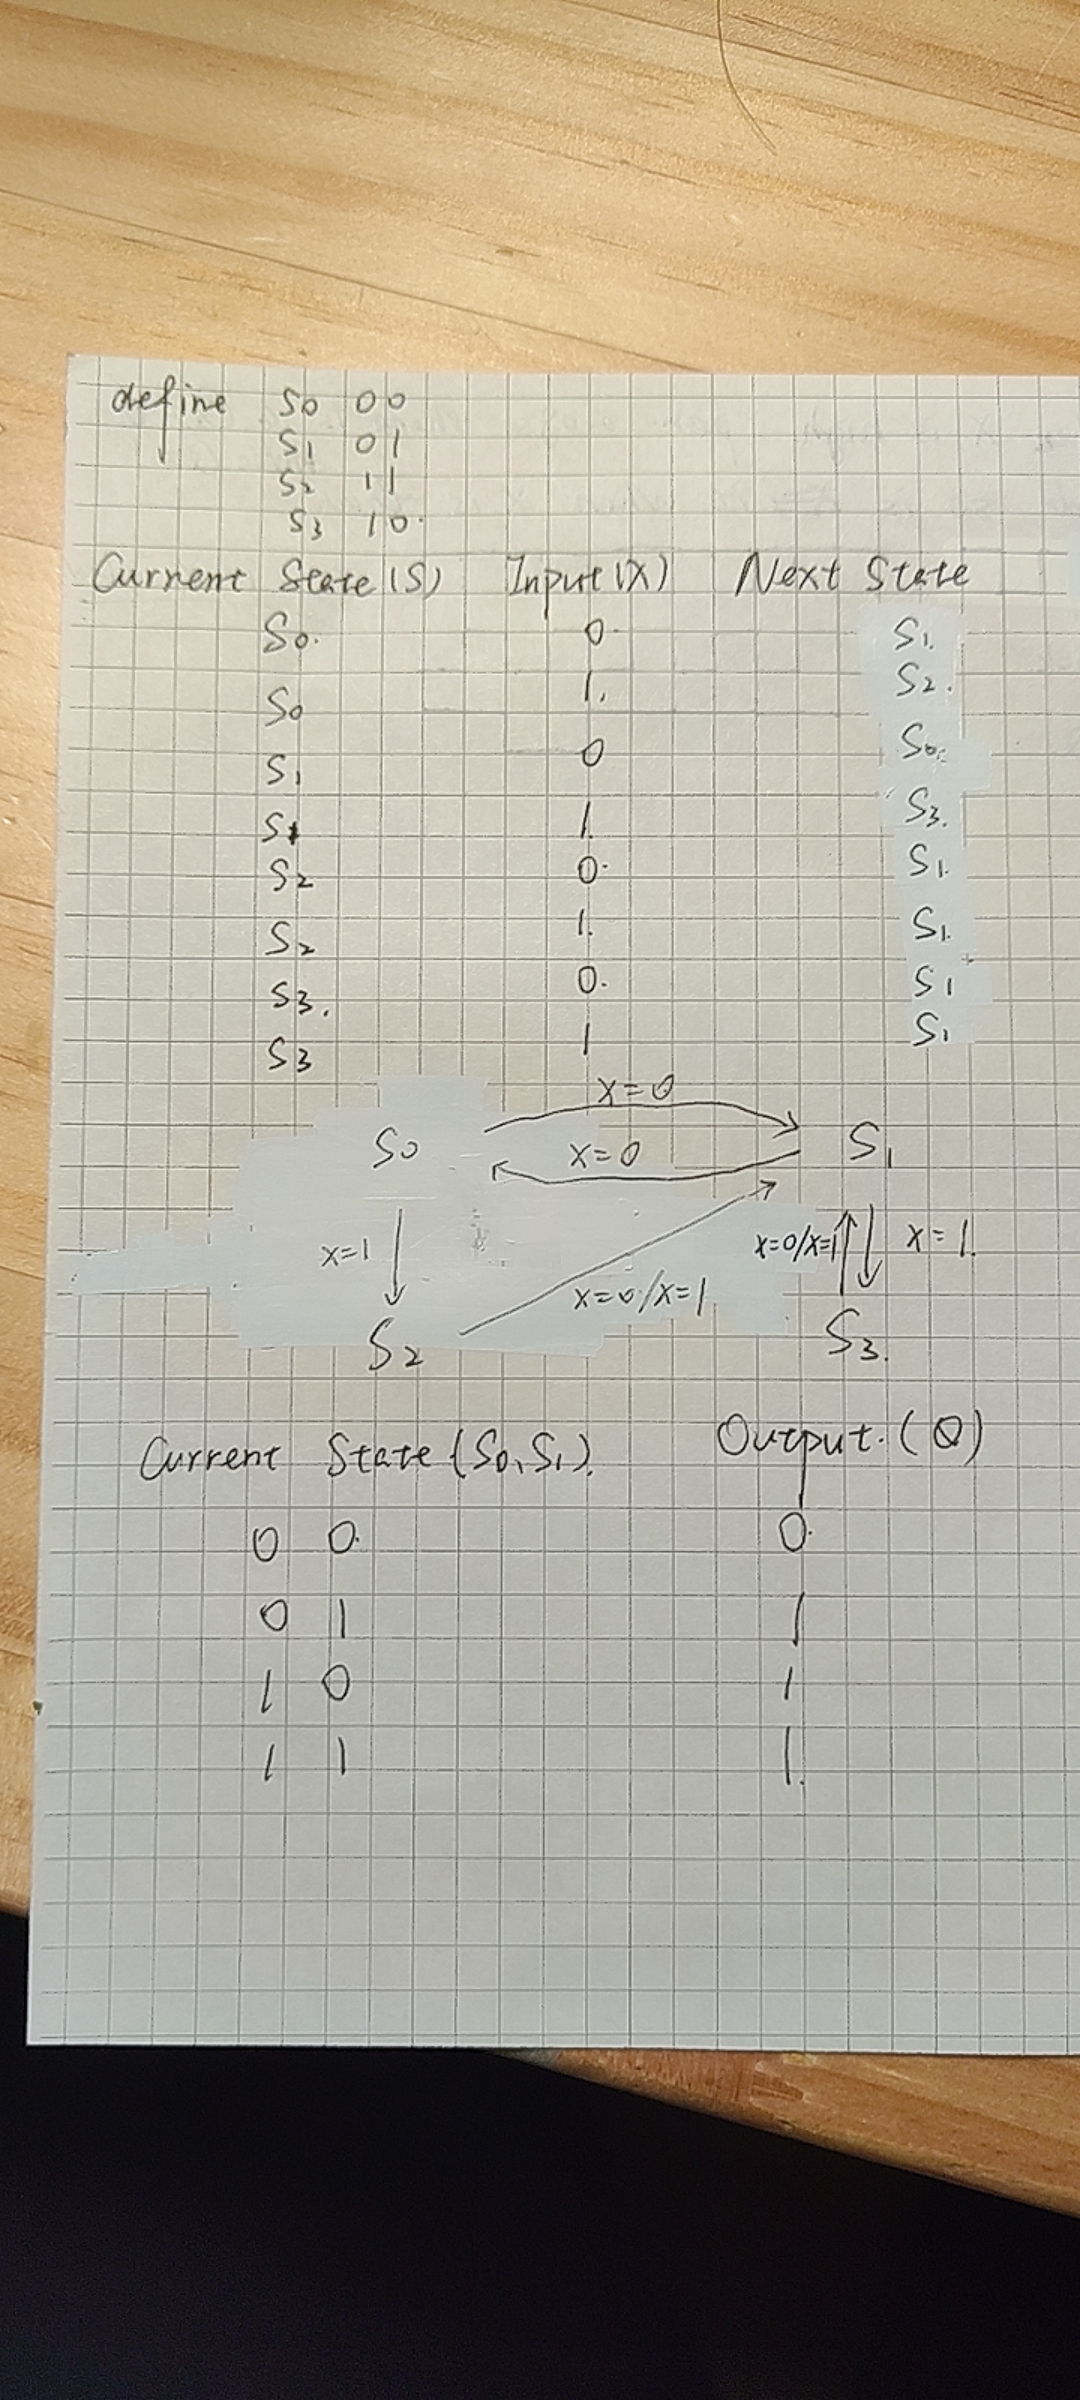 define S0 00
S1 01
S2 11
S3 10.
Current State (S) Input (X) Next State
S0. 0. S1.
S0 1. S2.
S1 0 S0.
S1 1. S3.
S2 0. S1.
S2 1. S1.
S3. 0. S1
S3 1 S1
X=0
S0 X=0 S1
X=1 X=0/X=1 X=1.
X=0/X=1
S2 S3.
Current State (S0,S1). Output. (Q)
0 0. 0.
0 1 1
1 0 1
1 1 1.